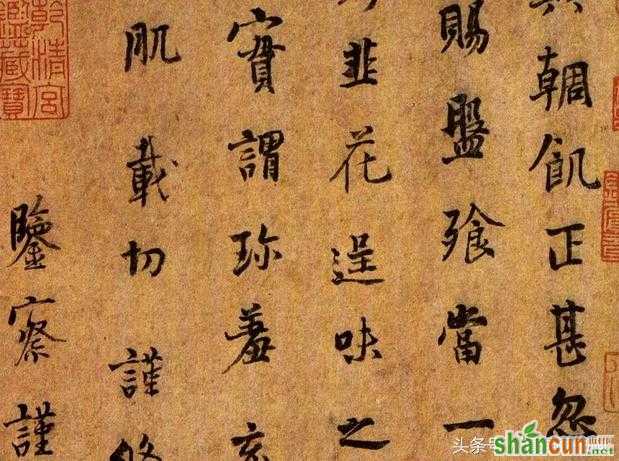 輖飢正甚忽
賜盤飧當一
韭花逞味之
實謂珍羞充
肌載切謹修
鑒察謹
乾清宮
鑑藏寶
头条号
shancun
.net